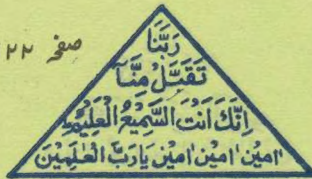 صفحہ ۲۲
رَبَّنَا
تَقَبَّلْ مِنَّا
اِنَّكَ اَنْتَ السَّمِيْعُ الْعَلِيْمُ
اٰمِيْن اٰمِيْن اٰمِيْن يَارَبَّ الْعٰلَمِيْنَ